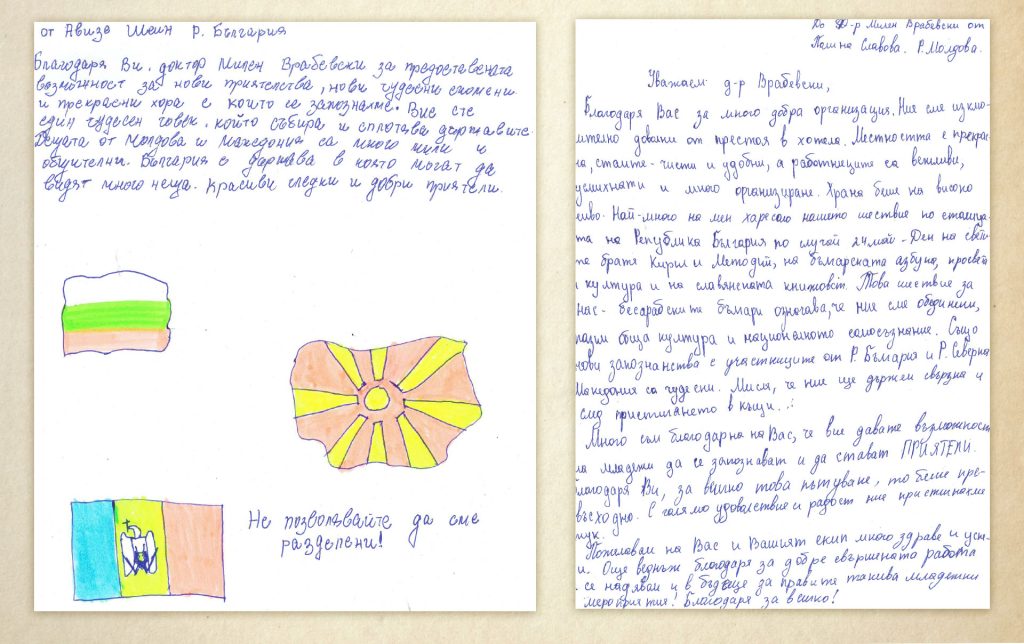 от Авизе Шеин Р. България
Благодаря Ви, доктор Милен Врабевски за предоставената
възможност за нови приятелства, нови чудесни спомени
и прекрасни хора с които се запознахме. Вие сте
един чудесен човек, който събира и сплотява държавите.
Децата от Молдова и Македония са много мили и
общителни. България е държава в която могат да
видят много неща. Красиви гледки и добри приятели.
Не позволявайте да сме
разделени!
До Д-р Милен Врабевски от
Полина Славова. Р. Молдова.
Уважаем д-р Врабевски,
Благодаря Вас за много добра организация. Ние сме изклю-
ително доволни от престоя в хотела. Местността е прекрас
на, стаите - чисти и удобни, а работниците са вежливи,
усмихнати и много организиране. Храна беше на високо
иво. Най-много на мен харесало нашето шествие по столица-
та на Република България по случай 24 май - Ден на свети
те братя Кирил и Методий, на българската азбука, просвет
и култура и на славянската книжовст. Това шествие за
нас - бесарабските българи означава, че ние сме обединени,
пазим обща култура и националното самосъзнание. Също
нови запознанства с участниците от Р. България и Р. Северна
Македония са чудесни. Мисля, че ние ще държем свързка и
след пристигането в къщи.
Много съм благодарна на Вас, че вие давате възможност
на младежи да се запознават и да стават ПРИЯТЕЛИ.
Благодаря Ви, за всичко това пътуване, то беше пре-
възходно. С голямо удоволствие и радост ние пристигнахме
тук.
Пожелавам на Вас и Вашият екип много здраве и усп-
и. Още веднъж благодаря за добре свършената работа
се надявам и в бъдеще за правите такива младежки
мероприятие! Благодаря за всичко!